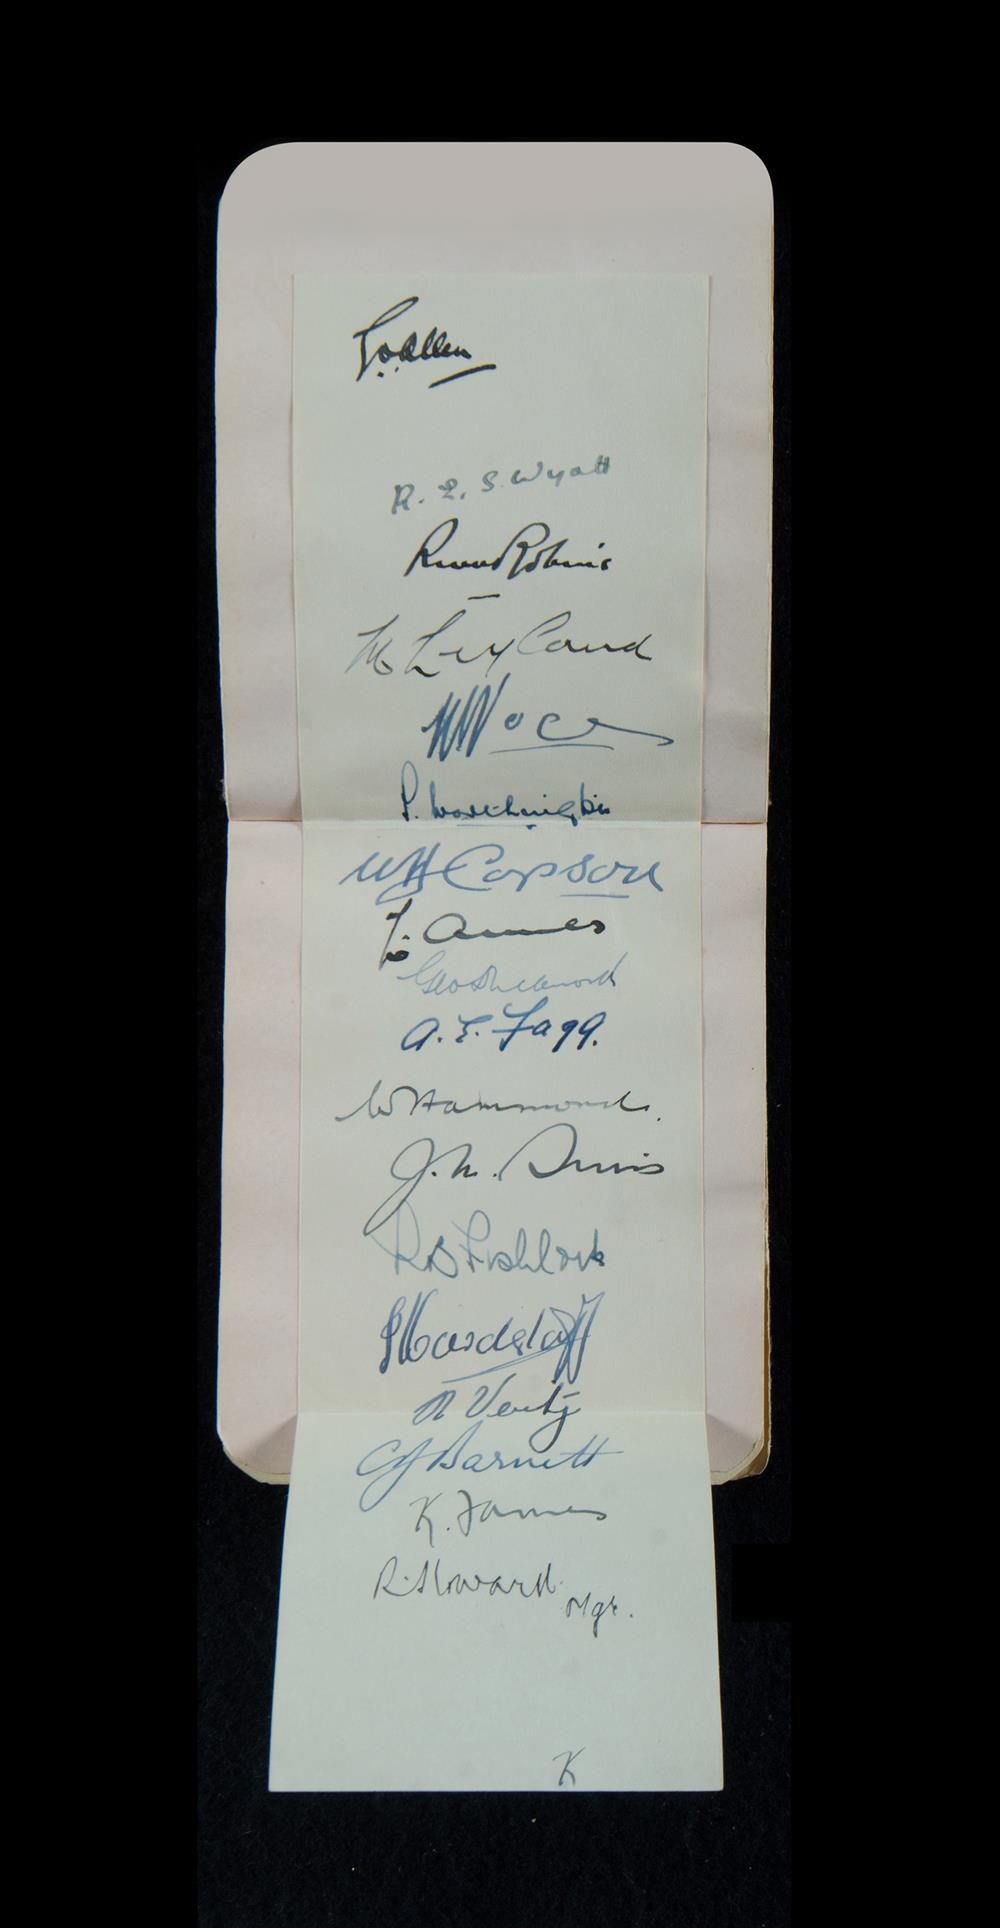 G.O. Allen
R. E. S. Wyatt
R W V Robins
M Leyland
W Voce
S. Worthington
W H Copson
L. Ames
Geo Duckworth
A. E. Fagg.
W Hammond.
J. M. Sims
L B Fishlock
J Hardstaff
H Verity
C J Barnett
K. James
R. Howard. Mgr.
K